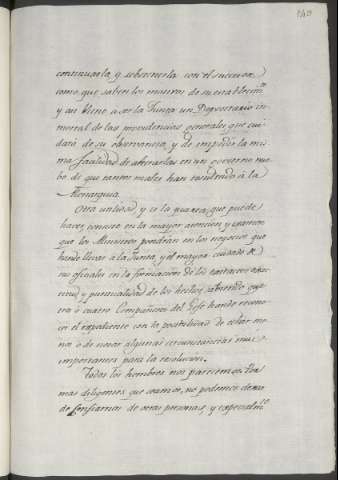 continuarla, y sobstenerla con el succesor
como que saben los motivos de su establecim.to
y asi viene a ser la Junta un Depositario in-
mortal de las providencias generales que cui-
dará de su observancia, y de impedir la mis-
ma facilidad de alterarlas en un govierno nue-
bo de que tantos males han resultado á la
Monarquia.
Otra utilidad, y es la quarta, que puede
hacer, consiste en la mayor atencion y examen
que los Ministros pondrán en los negocios que
han de llevar á la Junta, y el mayor cuidado de
sus oficiales en la formacion de los extractos exac-
titud y puntualidad de los hechos, sabiendo que
tres ó cuatro Compañeros del Gefe han de recono-
cer el expediente con la posibilidad de echar me-
nos ó de notar algunas circunstancias mui
importantes para la resolucion.
Todos los hombres nos parecemos. Por
mas diligentes que seamos, no podemos dexar
de confiarnos de otras personas, y especialm.te